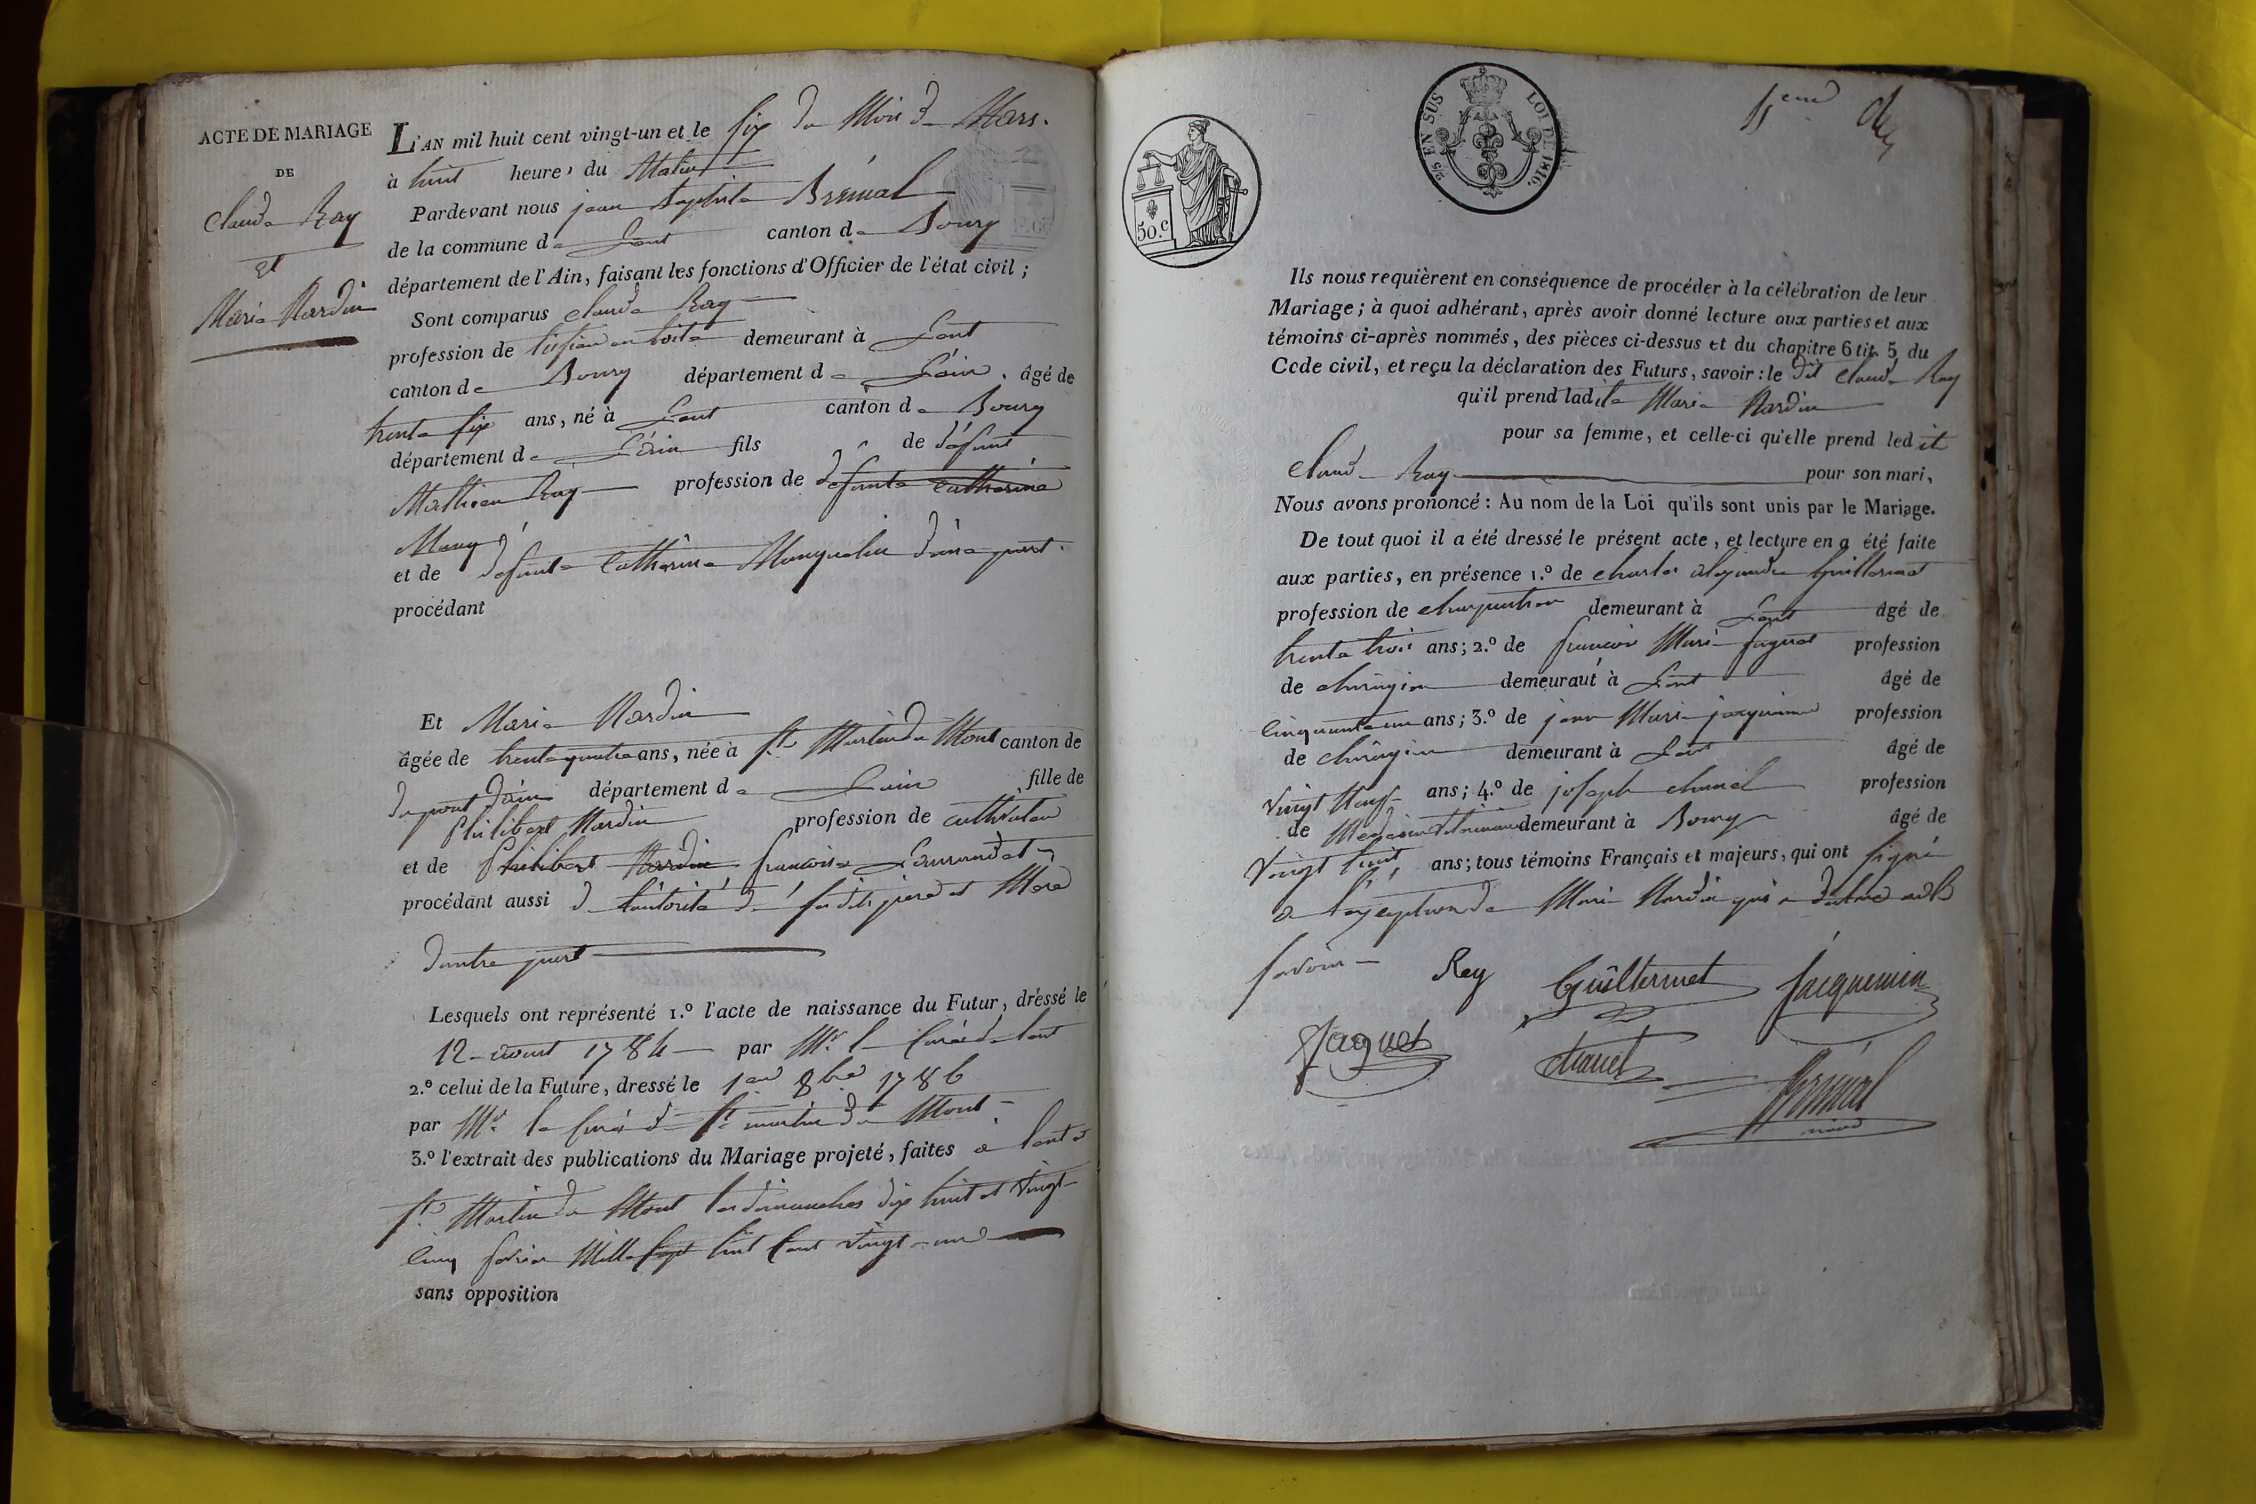 ACTE DE MARIAGE
DE
Claude Ray
et
Marie Nardin
L'AN mil huit cent vingt-un et le six du Mois de Mars.
à huit heures du Matin
Pardevant nous jean baptiste Bréval
de la commune de canton de Bourg
département de l'Ain, faisant les fonctions d'Officier de l'état civil ;
Sont comparus Claude Ray
profession de en toile demeurant à
canton de Bourg département de L'ain. âgé de
trente six ans, né à canton de Bourg
département de L'ain fils de défunt
Mathieu Ray profession de defunte Catherine
et de defunte Catherine d'une part.
procédant
Et Marie Nardin
âgée de trente quatre ans, née à St Martin du Mont canton de
du pont d'ain département de Lain fille de
Philibert Nardin profession de cultivateur
et de Philibert Nardin françoise
procédant aussi de l'autorité de ses dits père et Mere
d'autre part
Lesquels ont représenté 1.º l'acte de naissance du Futur, dressé le
12 aoust 1784 par Mr le Curé de
2.º celui de la Future, dressé le 1er 8bre 1786
par Mr le Curé de St martin du Mont
3.º l'extrait des publications du Mariage projeté, faites à et
St Martin du Mont les dimanches dix huit et vingt
cinq fevrier Mille sept huit Cent vingt un
sans opposition
50.c
2/5 EN SUS LOI DE 1816.
Ils nous requièrent en conséquence de procéder à la célébration de leur
Mariage ; à quoi adhérant, après avoir donné lecture aux parties et aux
témoins ci-après nommés, des pièces ci-dessus et du chapitre 6 tit. 5 du
Code civil, et reçu la déclaration des Futurs, savoir : le dit Claude Ray
qu'il prend ladite Marie Nardin
pour sa femme, et celle-ci qu'elle prend ledit
Claude Ray pour son mari,
Nous avons prononcé : Au nom de la Loi qu'ils sont unis par le Mariage.
De tout quoi il a été dressé le présent acte, et lecture en a été faite
aux parties, en présence 1.º de charles alexandre Guillermet
profession de charpentier demeurant à âgé de
trente trois ans ; 2.º de françois Marie Jaguet profession
de chirurgien demeurant à âgé de
cinquante un ans ; 3.º de jean Marie jacquemin profession
de chirurgien demeurant à âgé de
vingt Neuf ans ; 4.º de joseph profession
de Medecin veterinaire demeurant à Bourg âgé de
vingt huit ans ; tous témoins Français et majeurs, qui ont signé
a l'exception de Marie Nardin qui a
savoir
Rey Guillermet Jacquemin
Jaguet
Bréval
maire